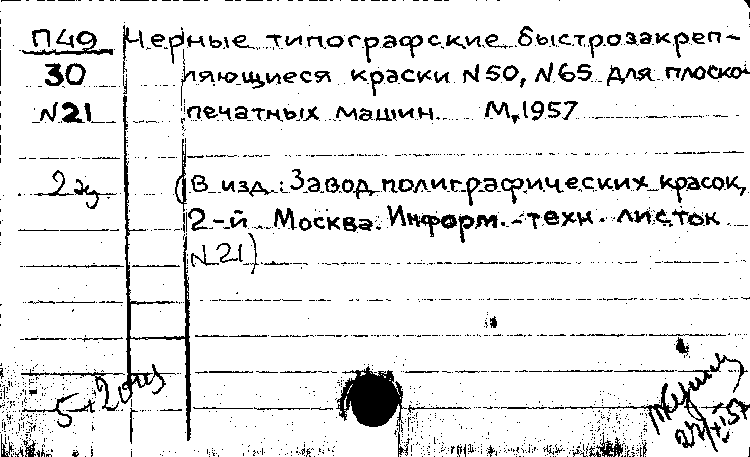 П49 Черные типографские быстрозакреп-
30 ляющиеся краски N50, N65 для плоско-
N21 печатных машин. М, 1957
2 эк (В изд: Завод полиграфических красок,
2-й Москва. Информ.-техн. листок
N21)
5+2
27/XI 57